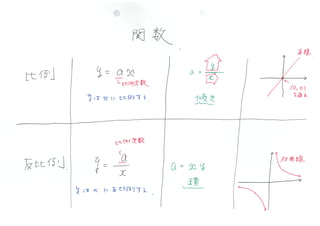 関数
比例
y = ax
比例定数
yはxに比例する
a = y/x
傾き
直線
(0,0)
を通る
反比例
比例定数
y = a/x
yはxに反比例する
a = xy
積
双曲線